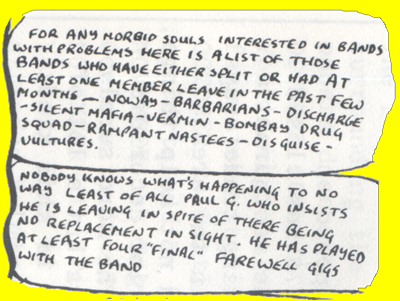 FOR ANY MORBID SOULS INTERESTED IN BANDS
WITH PROBLEMS HERE IS A LIST OF THOSE
BANDS WHO HAVE EITHER SPLIT OR HAD AT
LEAST ONE MEMBER LEAVE IN THE PAST FEW
MONTHS — NOWAY - BARBARIANS - DISCHARGE
- SILENT MAFIA - VERMIN - BOMBAY DRUG
SQUAD - RAMPANT NASTEES - DISGUISE -
VULTURES.
NOBODY KNOWS WHAT'S HAPPENING TO NO
WAY LEAST OF ALL PAUL G. WHO INSISTS
HE IS LEAVING IN SPITE OF THERE BEING
NO REPLACEMENT IN SIGHT. HE HAS PLAYED
AT LEAST FOUR "FINAL" FAREWELL GIGS
WITH THE BAND